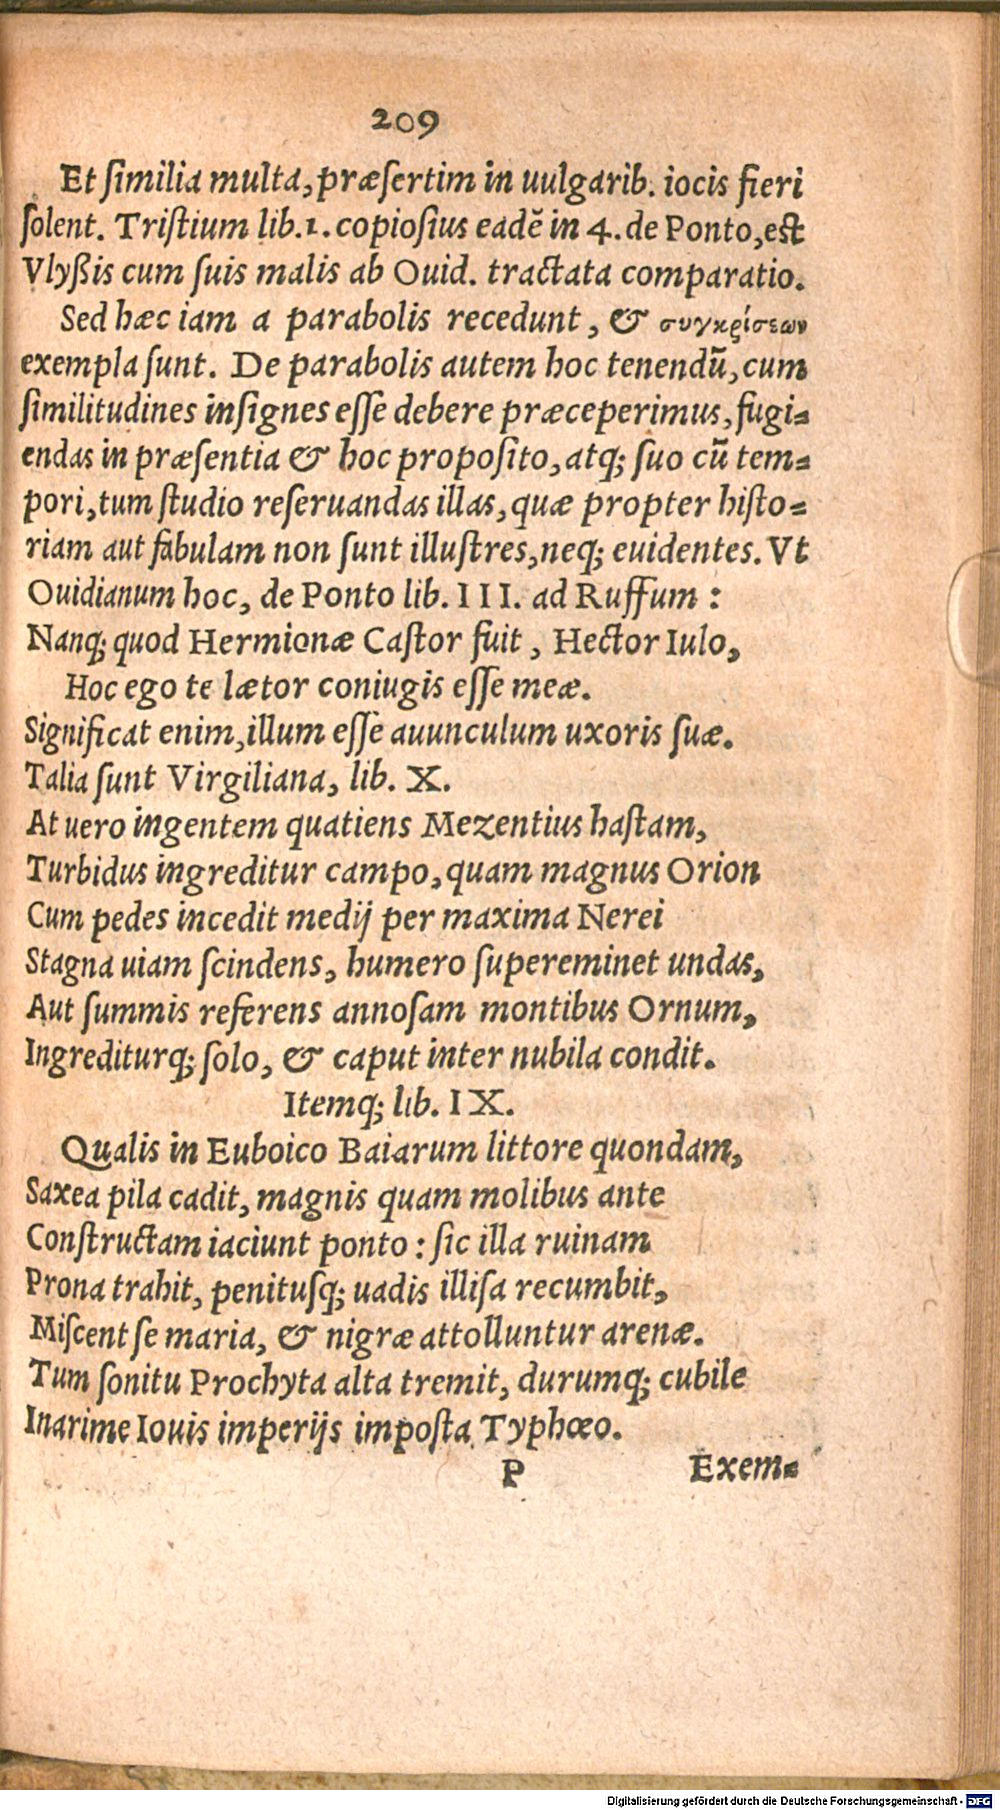 209
Et ſimilia multa, præſertim in uulgarib. iocis fieri
ſolent. Triſtium lib. 1. copioſius eadẽ in 4. de Ponto, est
Vlyßis cum ſuis malis ab Ouid. tractata comparatio.
Sed hæc iam a parabolis recedunt, & συγκρίσεων
exempla ſunt. De parabolis autem hoc tenendũ, cum
ſimilitudines inſignes eſſe debere præceperimus, fugi=
endas in præſentia & hoc propoſito, atq; ſuo cũ tem=
pori, tum ſtudio reſeruandas illas, quæ propter hiſto=
riam aut fabulam non ſunt illuſtres, neq; euidentes. Vt
Ouidianum hoc, de Ponto lib. III. ad Ruffum :
Nanq; quod Hermionæ Caſtor fuit, Hector Iulo,
Hoc ego te lætor coniugis eſſe meæ.
Significat enim, illum eſſe auunculum uxoris ſuæ.
Talia ſunt Virgiliana, lib. X.
At uero ingentem quatiens Mezentius haſtam,
Turbidus ingreditur campo, quam magnus Orion
Cum pedes incedit medij per maxima Nerei
Stagna uiam ſcindens, humero ſupereminet undas,
Aut ſummis referens annoſam montibus Ornum,
Ingrediturq; ſolo, & caput inter nubila condit.
Itemq; lib. IX.
Qualis in Euboico Baiarum littore quondam,
Saxea pila cadit, magnis quam molibus ante
Conſtructam iaciunt ponto : ſic illa ruinam
Prona trahit, penituſq; uadis illiſa recumbit,
Miſcent ſe maria, & nigræ attolluntur arenæ.
Tum ſonitu Prochyta alta tremit, durumq; cubile
Inarime Iouis imperijs impoſta Typhœo.
P Exem=
Digitalisierung gefördert durch die Deutsche Forschungsgemeinschaft - DFG